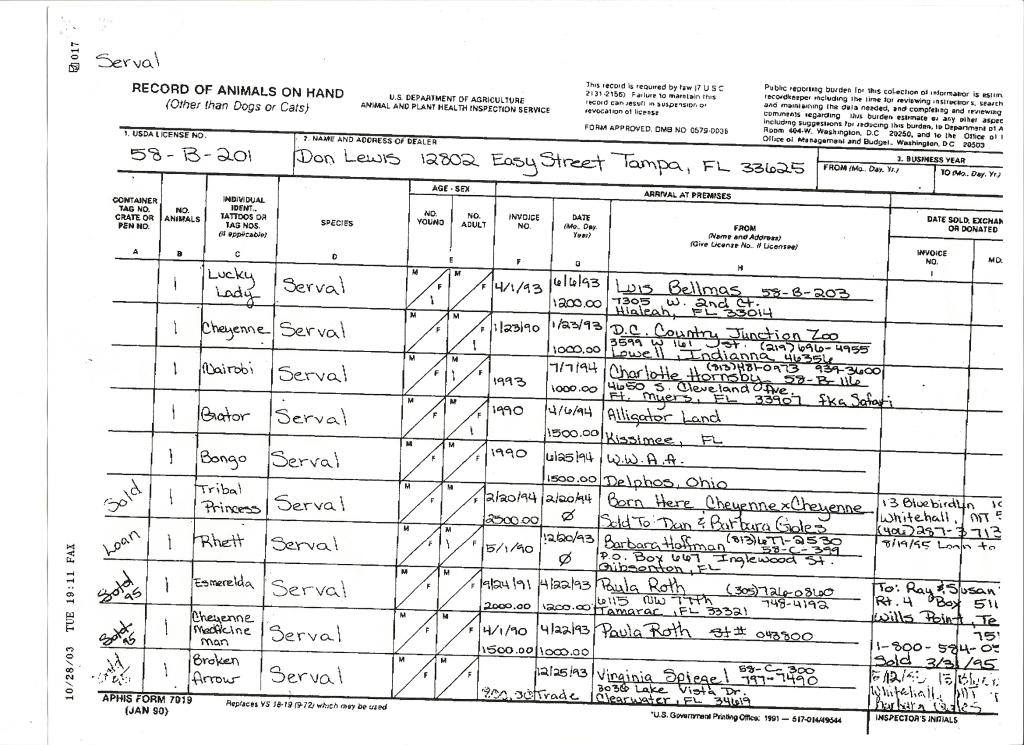 017
Serval
RECORD OF ANIMALS ON HAND
(Other than Dogs or Cats)
U.S. DEPARTMENT OF AGRICULTURE
ANIMAL AND PLANT HEALTH INSPECTION SERVICE
This record is required by law (7 U S C
2131-2156) Failure to maintain this
record can result in suspension or
revocation of license
FORM APPROVED. OMB NO 0579-0036
Public reporting burden for this collection of information is estim
recordkeeper including the time for reviewing instructions, search
and maintaining the data needed, and completing and reviewing
comments regarding this burden estimate or any other aspec
including suggestions for reducing this burden, to Department of A
Room 404-W, Washington, D.C 20250, and to the Office of
Office of Management and Budget, Washington, D.C 20503
1. USDA LICENSE NO.
58-B-201
2. NAME AND ADDRESS OF DEALER
Don Lewis 12802 Easy Street Tampa, FL 33625
3. BUSINESS YEAR
FROM (Mo., Day, Yr.)
TO (Mo., Day, Yr.)
CONTAINER TAG NO. CRATE OR PEN NO.
NO. ANIMALS
INDIVIDUAL IDENT., TATTOOS OR TAG NOS. (if applicable)
SPECIES
AGE - SEX
NO. YOUNG
NO. ADULT
ARRIVAL AT PREMISES
INVOICE NO.
DATE (Mo., Day, Year)
FROM
(Name and Address)
(Give License No., if Licensee)
DATE SOLD, EXCHAN
OR DONATED
INVOICE NO.
MO.
A B C D E F G H I
1 Lucky Lady Serval M F 1 M F 4/1/93 6/6/93 Luis Bellmas 58-B-203
1200.00 7305 W. 2nd Ct.
Hialeah, FL 33014
1 Cheyenne Serval M F M F 1 1/23/90 1/23/93 D.C. Country Junction Zoo
1000.00 3599 W 161 St. (219) 696-4955
Lowell, Indianna 46356
1 Nairobi Serval M F M 1 F 1993 7/7/94 (813)481-0973 939-3600
Charlotte Hornsby 58-B-116
1000.00 4650 S. Cleveland Ave.
Ft. Myers, FL 33907 fka Safari
1 Gator Serval M F M F 1 1990 4/6/94 Alligator Land
1500.00 Kissimee, FL
1 Bongo Serval M F M F 1990 6/25/94 W.W.A.A.
1500.00 Delphos, Ohio
Sold 1 Tribal Princess Serval M F M F 2/20/94 2/20/94 Born Here Cheyenne x Cheyenne 13 Bluebird Ln
2500.00 Ø Sold To: Dan & Barbara Gales Whitehall, MT
(406)287-3713
Loan 1 Rhett Serval M F M 1 F 5/1/90 12/20/93 Barbara Hoffman (813)677-2530 8/19/95 Loan to
58-C-399
Ø P.O. Box 667 Inglewood St.
Gibsonton, FL
Sold 95 1 Esmerelda Serval M F M F 9/24/91 4/22/93 Paula Roth (305)726-0860 To: Ray & Susan
2000.00 1200.00 6115 NW 77th 748-4192 Rt. 4 Box 511
Tamarac, FL 33321 Wills Point, Te
Sold 95 1 Cheyenne Medicine man Serval M F M F 4/1/90 4/22/93 Paula Roth St# 043800
1500.00 1000.00 1-800-584-05
Sold 3/31/95
1 Broken Arrow Serval M F M F 12/25/93 Virginia Spiegel 58-C-300
797-7490
Trade 3036 Lake Vista Dr.
Clearwater, FL 34619
Whitehall, MT
Barbara Gales
APHIS FORM 7019
(JAN 90)
Replaces VS 18-19 (9-72) which may be used
*U.S. Government Printing Office: 1991 — 517-014/49544
INSPECTOR'S INITIALS
10/28/03 TUE 19:11 FAX